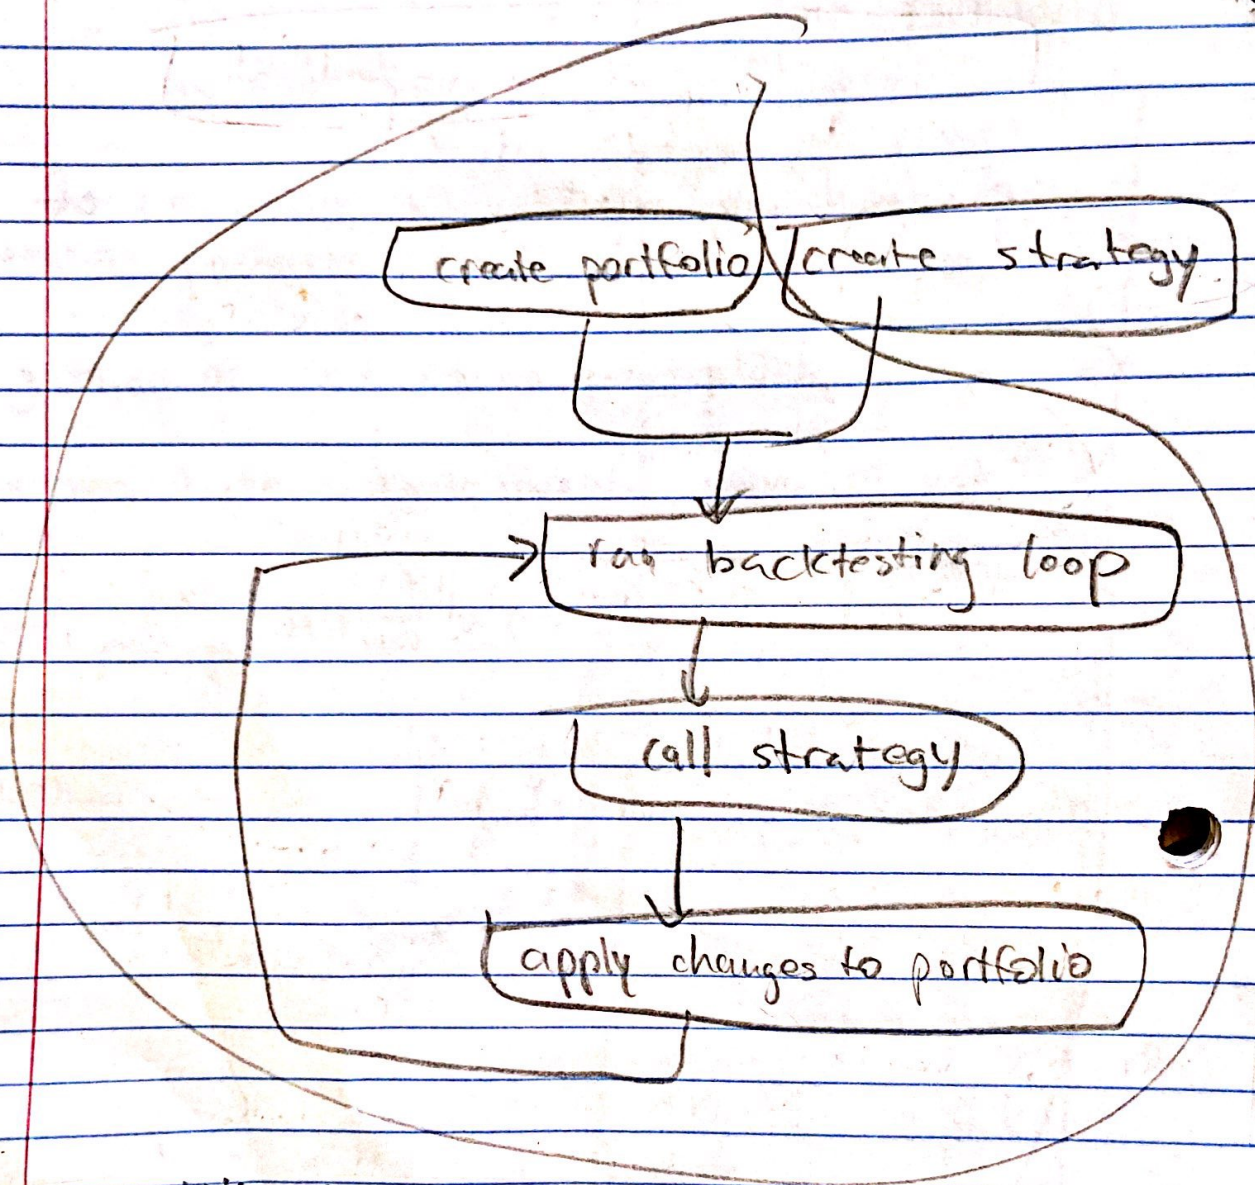 create portfolio
create strategy
run backtesting loop
call strategy
apply changes to portfolio